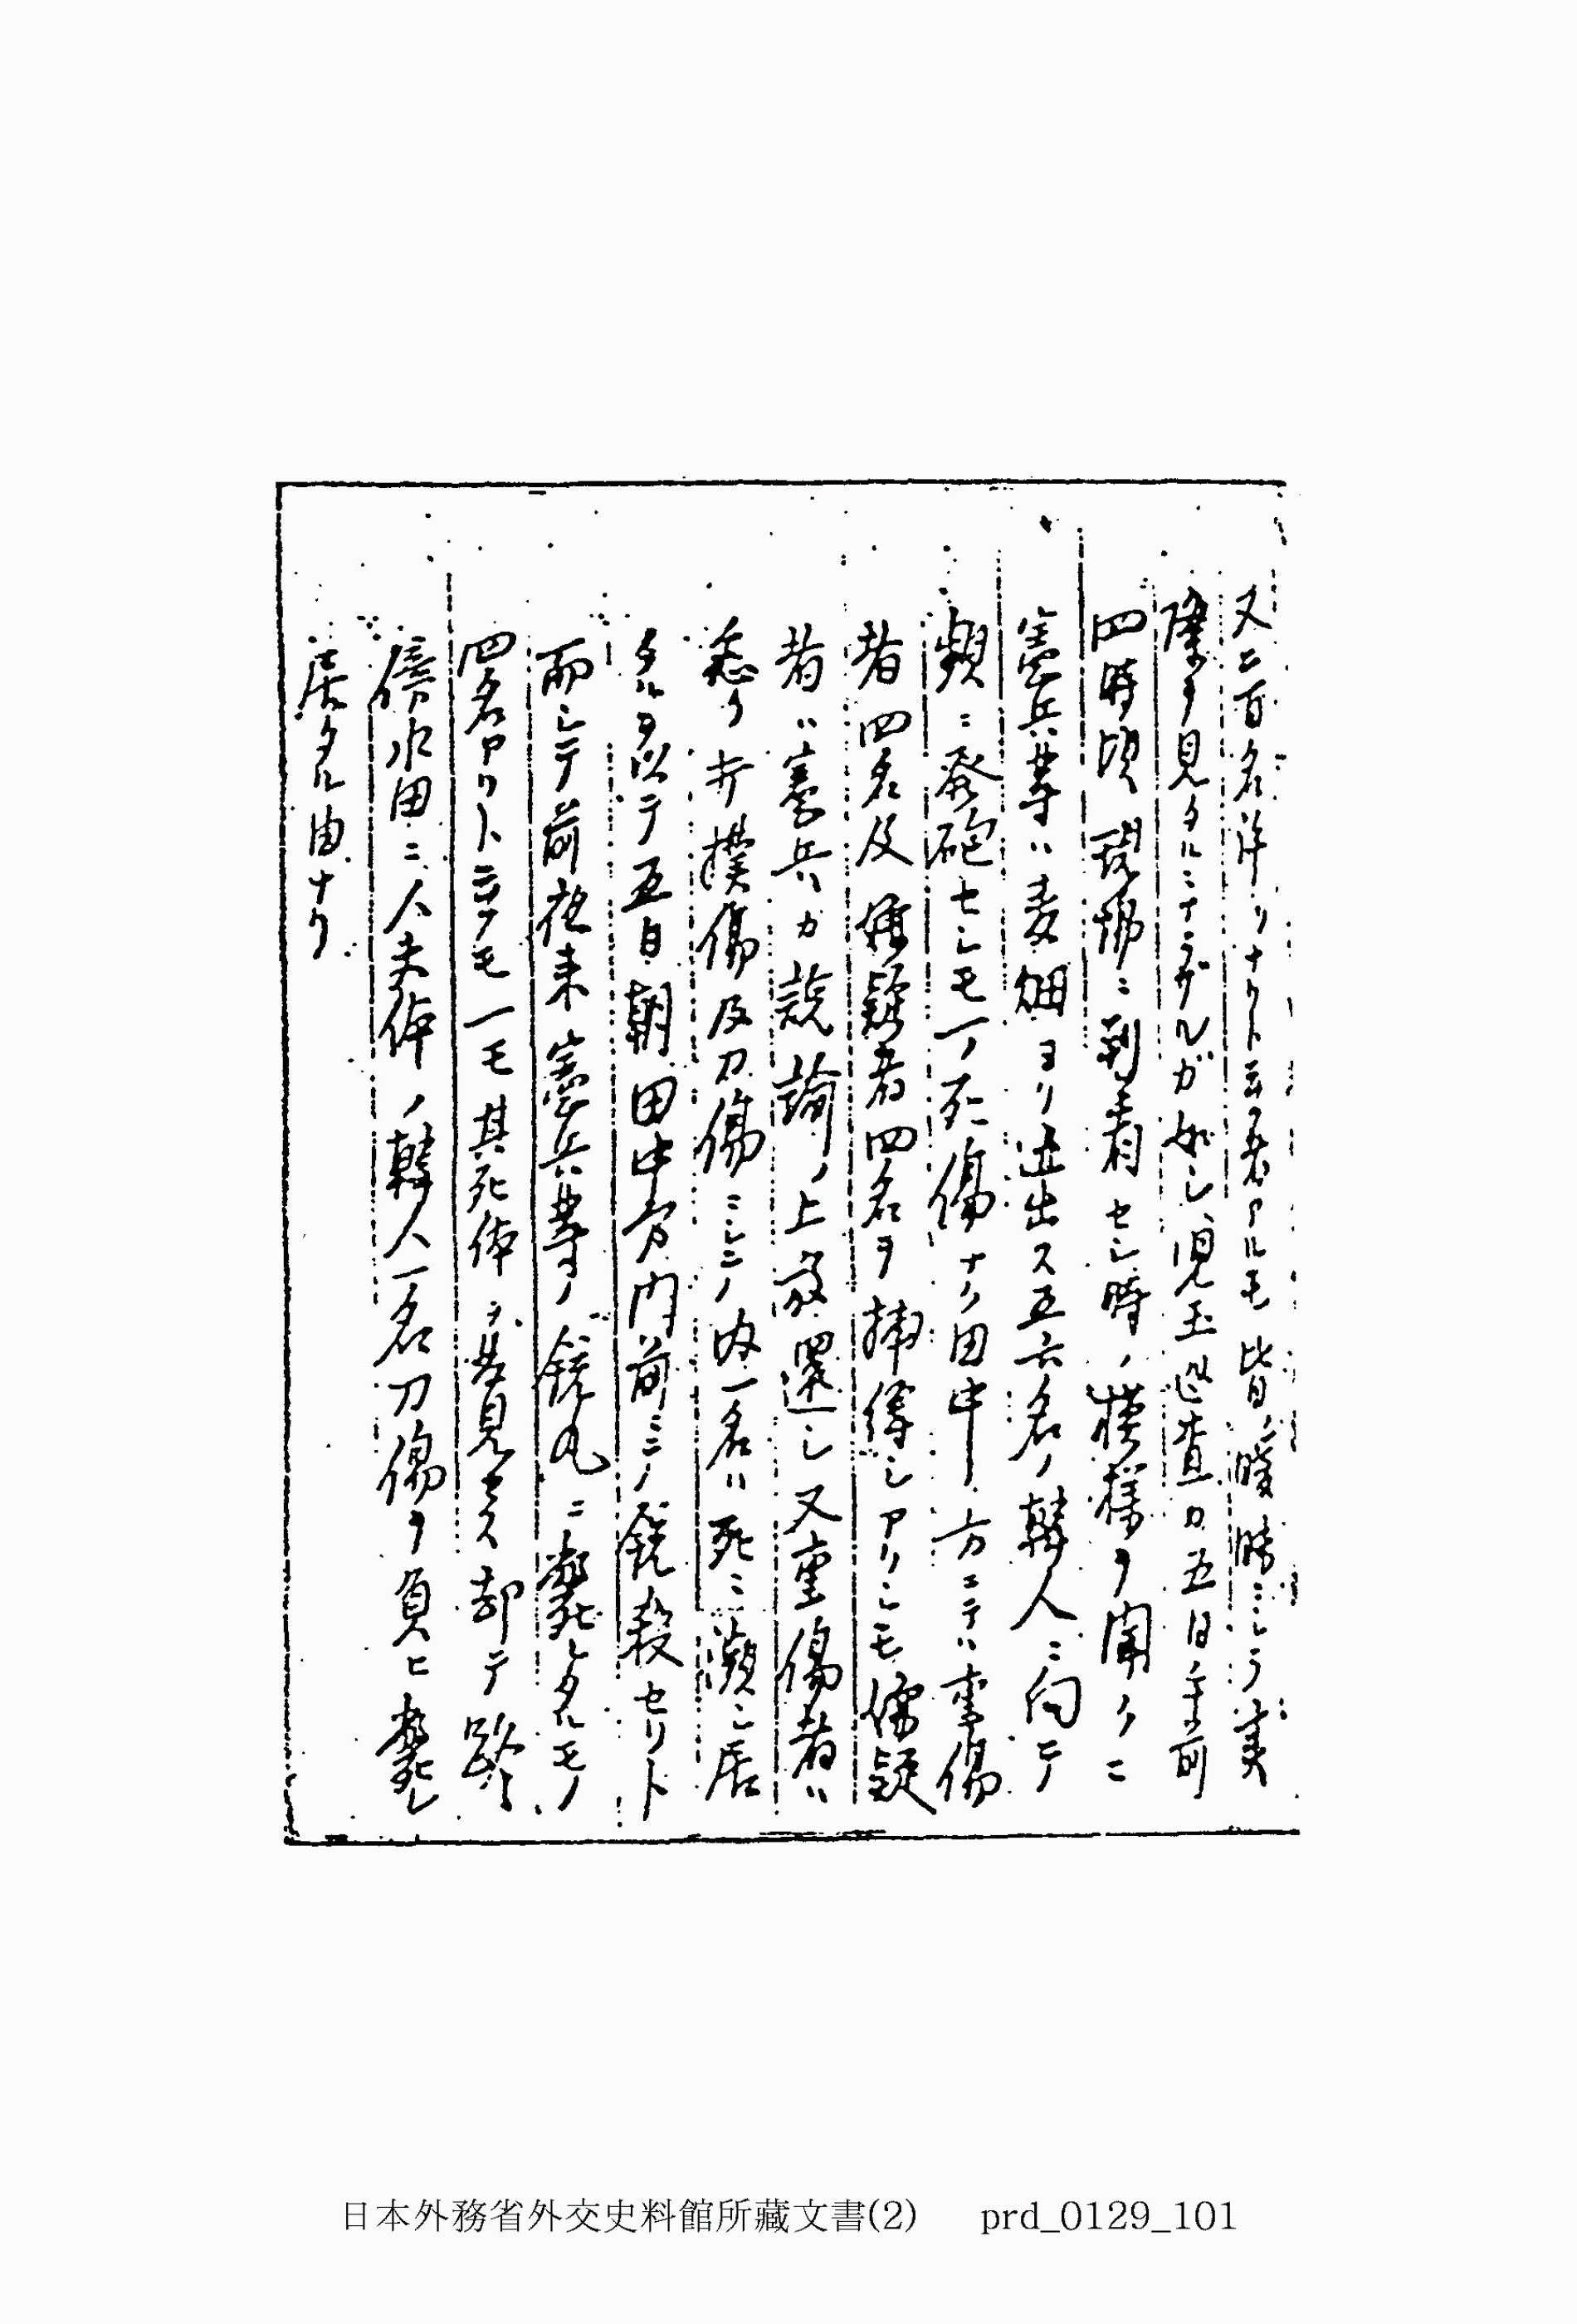 又二百名許リナリト云フ者アルモ皆曖昧ニシテ実
際ヲ見タルニナラザルガ如シ、児玉巡査カ五日午前
四時頃現場ニ到着セシ時ノ模様ヲ聞クニ
憲兵等ハ麦畑ヨリ迯出ス五六名ノ韓人ニ向テ
頻ニ発砲セシモ一ノ死傷ナク田中ノ方ニテハ重傷
者四名及嫌疑者四名ヲ捕得シアリシモ嫌疑
者ハ憲兵カ説諭ノ上放還シ又重傷者ハ
悉ク打撲傷及刀傷ニシテ内一名ハ死ニ瀕シ居
タルヲ以テ五日朝田中方門前ニテ銃殺セリト
而シテ前夜来憲兵等ノ銃丸ニ斃レタルモノ
四名アリト云フモ一モ其死体ヲ発見セス却テ路
傍水田ニ人夫体ノ韓人一名刀傷ヲ負ヒ斃レ
居タル由ナリ
日本外務省外交史料館所藏文書(2) prd_0129_101